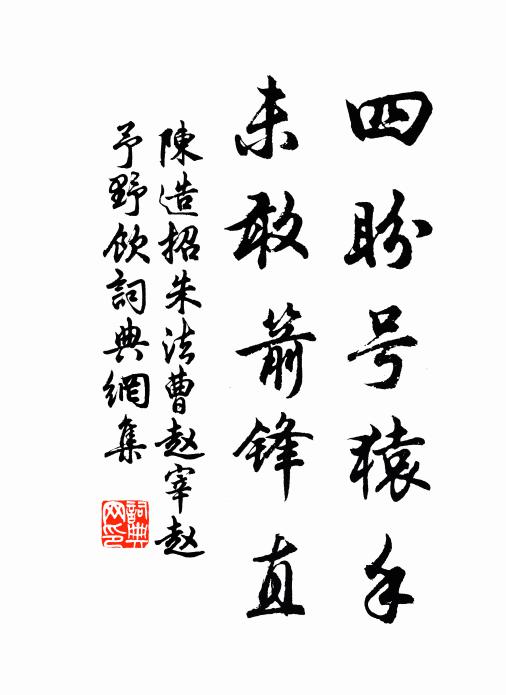 四盼号猿手
未敢箭锋直
陳造招朱法曹赵宰赵
予野飲詞典網集
詞典网印